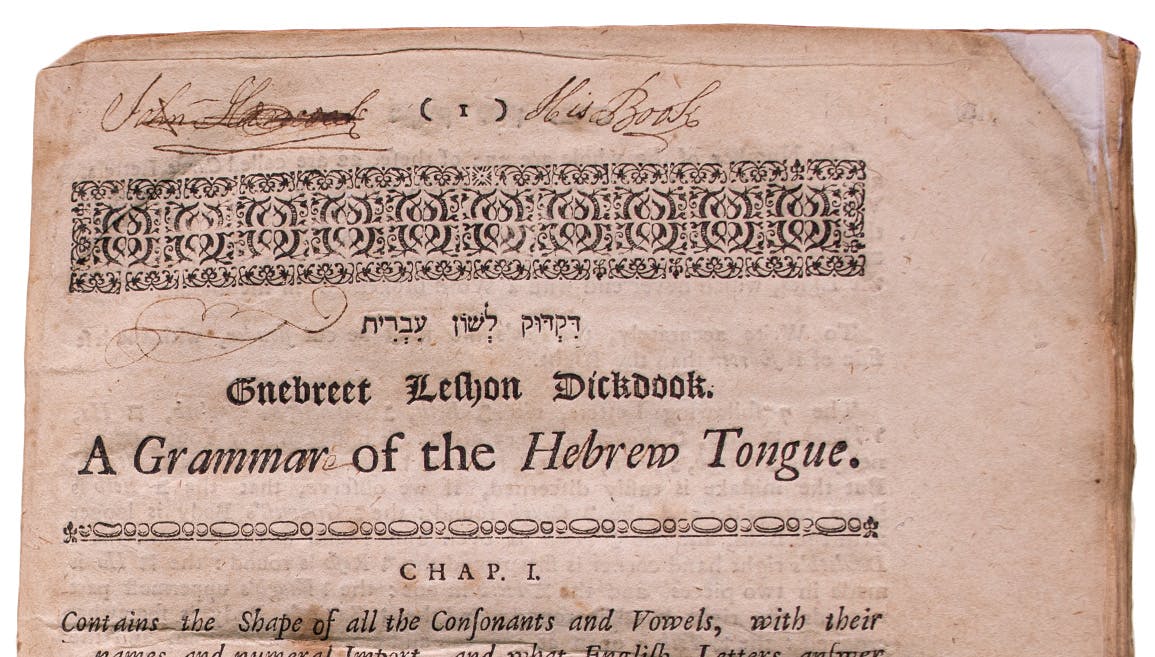 John Hancock ( 1 ) His Book
דִּקְדּוּק לְשׁוֹן עִבְרִית
Gnebreet Leſhon Dickdook.
A Grammar of the Hebrew Tongue.
CHAP. I.
Contains the Shape of all the Conſonants and Vowels, with their
names and numeral Import, and what Engliſh Letters anſwer